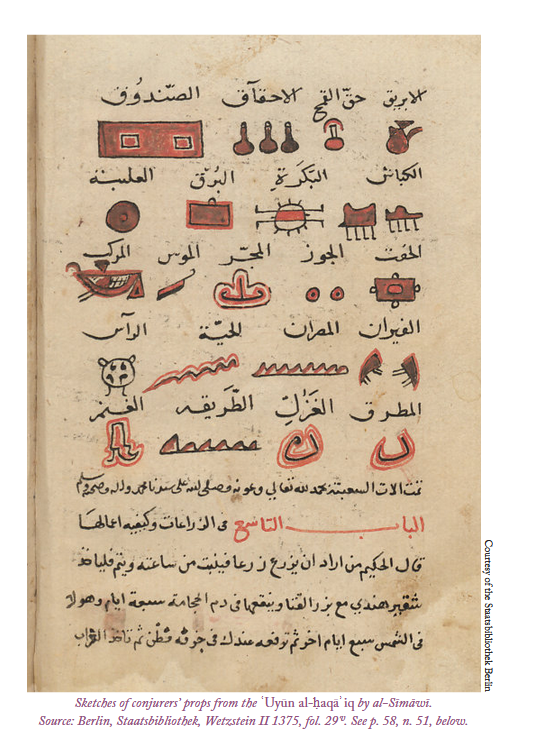 الابريق حقّ القمح الاحقاق الصّندوق
الكباش البَكَرَة البُرَق العلبة
الجوز المجرّ الموس المركب
الفيران المصران الحيّة الرأس
المطرق الغَزْل الطّريقه
تمت الات السعبذة بحمد لله تعالي وعونه وصلى الله على سيدنا محمد واله وصحبه وسلم
الباب التاسع فى الزراعات وكيفيه اعمالها
قال الحكيم من اراد ان يزرع زرعا فينبت من ساعته ويتم فلياخذ
هندي مع بزر القثا وينقعها فى دم الحجامة سبعة ايام وهو لا
فى الشمس سبع ايام اخر ثم عندك فى قطن ثم تاخذ التراب
Courtesy of the Staatsbibliothek Berlin
Sketches of conjurers' props from the ʿUyūn al-ḥaqāʾiq by al-Simāwī.
Source: Berlin, Staatsbibliothek, Wetzstein II 1375, fol. 29ᵛ. See p. 58, n. 51, below.